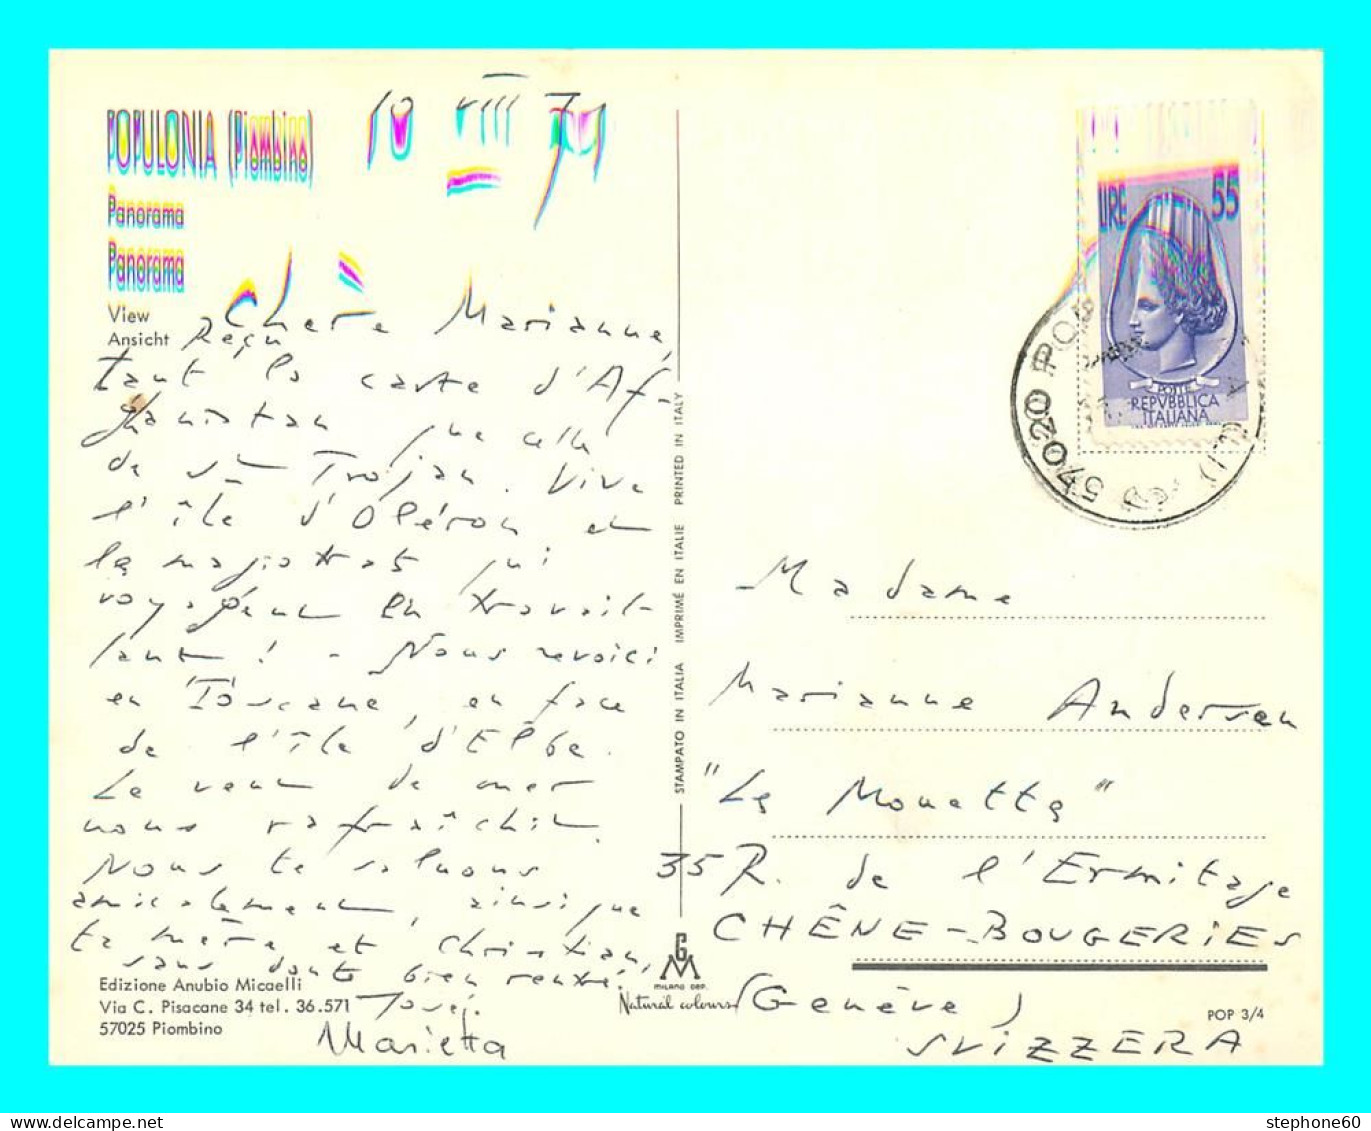 POPULONIA (Piombino)
10 VIII 71
Panorama
Panorama
View
Ansicht
Chère Marianne,
Reçu
tant la carte d'Af-
ghanistan que celle
de St Trojan. Vive
l'île d'Oléron et
les magistrats qui
voyagent en travail-
lant ! - Nous revoici
en Toscane, en face
de l'île d'Elbe.
Le vent de mer
nous rafraîchit.
Nous te saluons
amicalement, ainsi que
ta mère et Christian,
sans doute bien rentré.
José
Marietta
Edizione Anubio Micaelli
Via C. Pisacane 34 tel. 36.571
57025 Piombino
STAMPATO IN ITALIA IMPRIMÉ EN ITALIE PRINTED IN ITALY
G
M
MILANO DEP.
Natural colours
LIRE 55
POSTE
REPVBBLICA
ITALIANA
57020 POP
Madame
Marianne Andersen
"La Mouette"
35 R. de l'Ermitage
CHÊNE-BOUGERIES
(Genève)
SVIZZERA
POP 3/4
stephone60